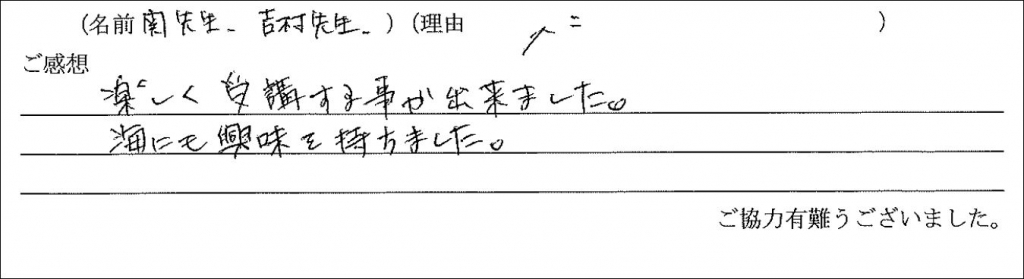 (名前 関先生、吉村先生、)(理由 〃 )
ご感想
楽しく受講する事が出来ました。
海にも興味を持ちました。
ご協力有難うございました。